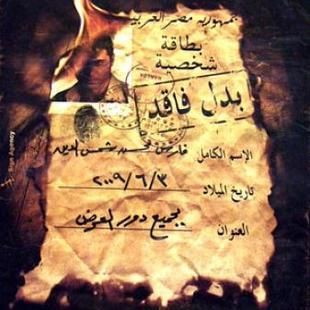 جمهورية مصر العربية
بطاقة
شخصية
بدل فاقد
الإسم الكامل فارس محمد شمس الدين
تاريخ الميلاد ٢٠٠٩/٦/٣
العنوان بجميع دور العرض
Agency